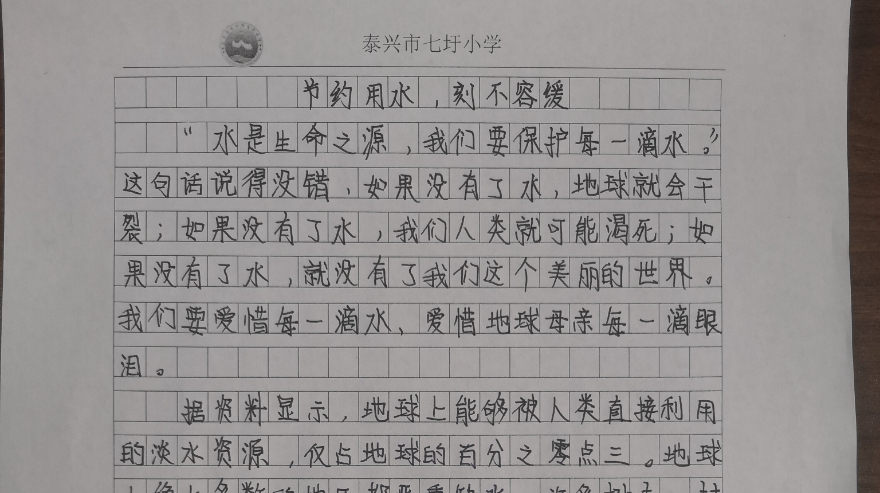 泰兴市七圩小学
节约用水，刻不容缓
“水是生命之源，我们要保护每一滴水。”
这句话说得没错、如果没有了水，地球就会干
裂；如果没有了水，我们人类就可能渴死；如
果没有了水，就没有了我们这个美丽的世界。
我们要爱惜每一滴水、爱惜地球母亲每一滴眼
泪。
据资料显示，地球上能够被人类直接利用
的淡水资源，仅占地球的百分之零点三。地球